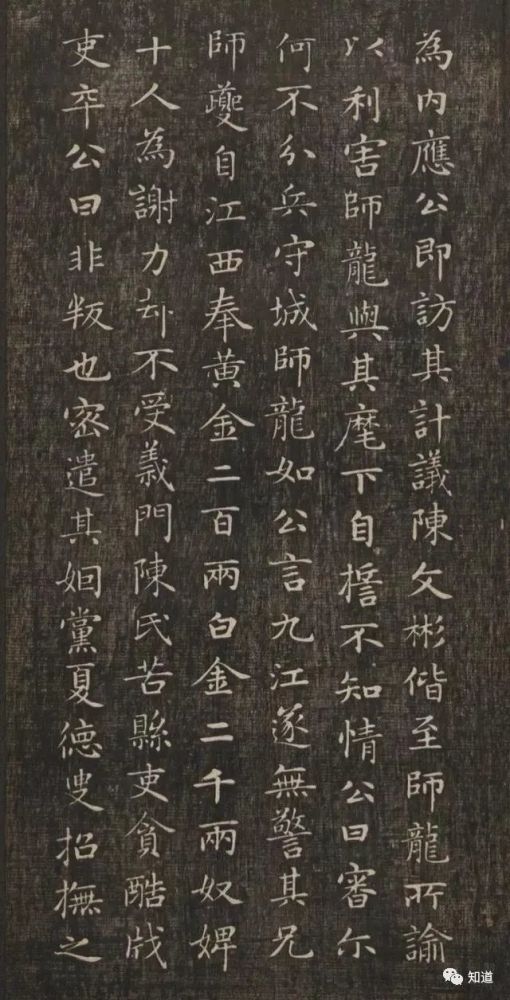 為内應公即訪其計議陳文彬偕至師龍所諭
以利害師龍與其麾下自擔不知情公曰審尔
何不分兵守城師龍如公言九江遂無警其兄
師夔自江西奉黄金二百兩白金二千兩奴婢
十人為謝力却不受義門陳氏苦縣吏貪酷戕
吏卒公曰非叛也宻遣其姻黨夏德叟招撫之
知道